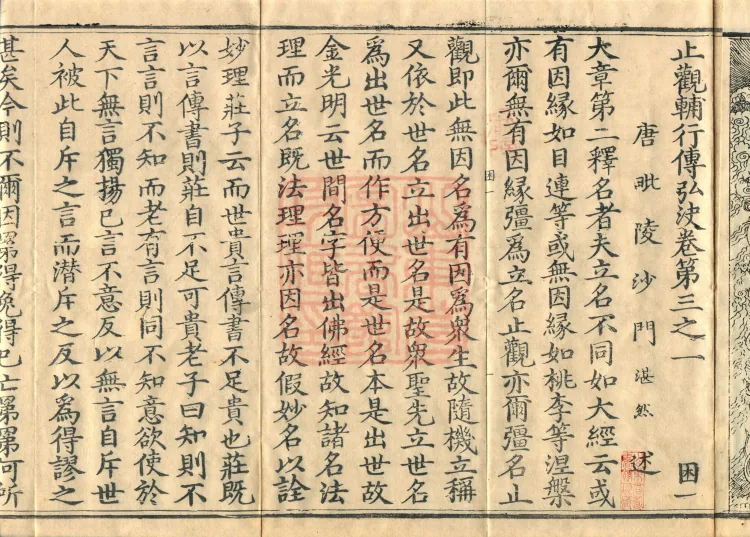 止觀輔行傳弘決卷第三之一　困一
唐毗陵沙門湛然述
大章第二釋名者夫立名不同如大經云或
有因緣如目連等或無因緣如桃李等涅槃
亦爾無有因緣彊為立名止觀亦爾彊名止
困一
觀即此無因名爲有因爲眾生故隨機立稱
又依於世名立出世名是故眾聖先立世名
爲出世名而作方便而是世名本是出世故
金光明云世間名字皆出佛經故知諸名法
理而立名既法理理亦因名故假妙名以詮
妙理莊子云而世貴言傳書不足貴也莊既
以言傳書則莊自不足可貴老子曰知則不
言言則不知而老有言則同不知意欲使於
天下無言獨揚已言不意反以無言自斥世
人被此自斥之言而潛斥之反以爲得謬之
甚矣今則不爾因罤得兔得已亡罤罤可所